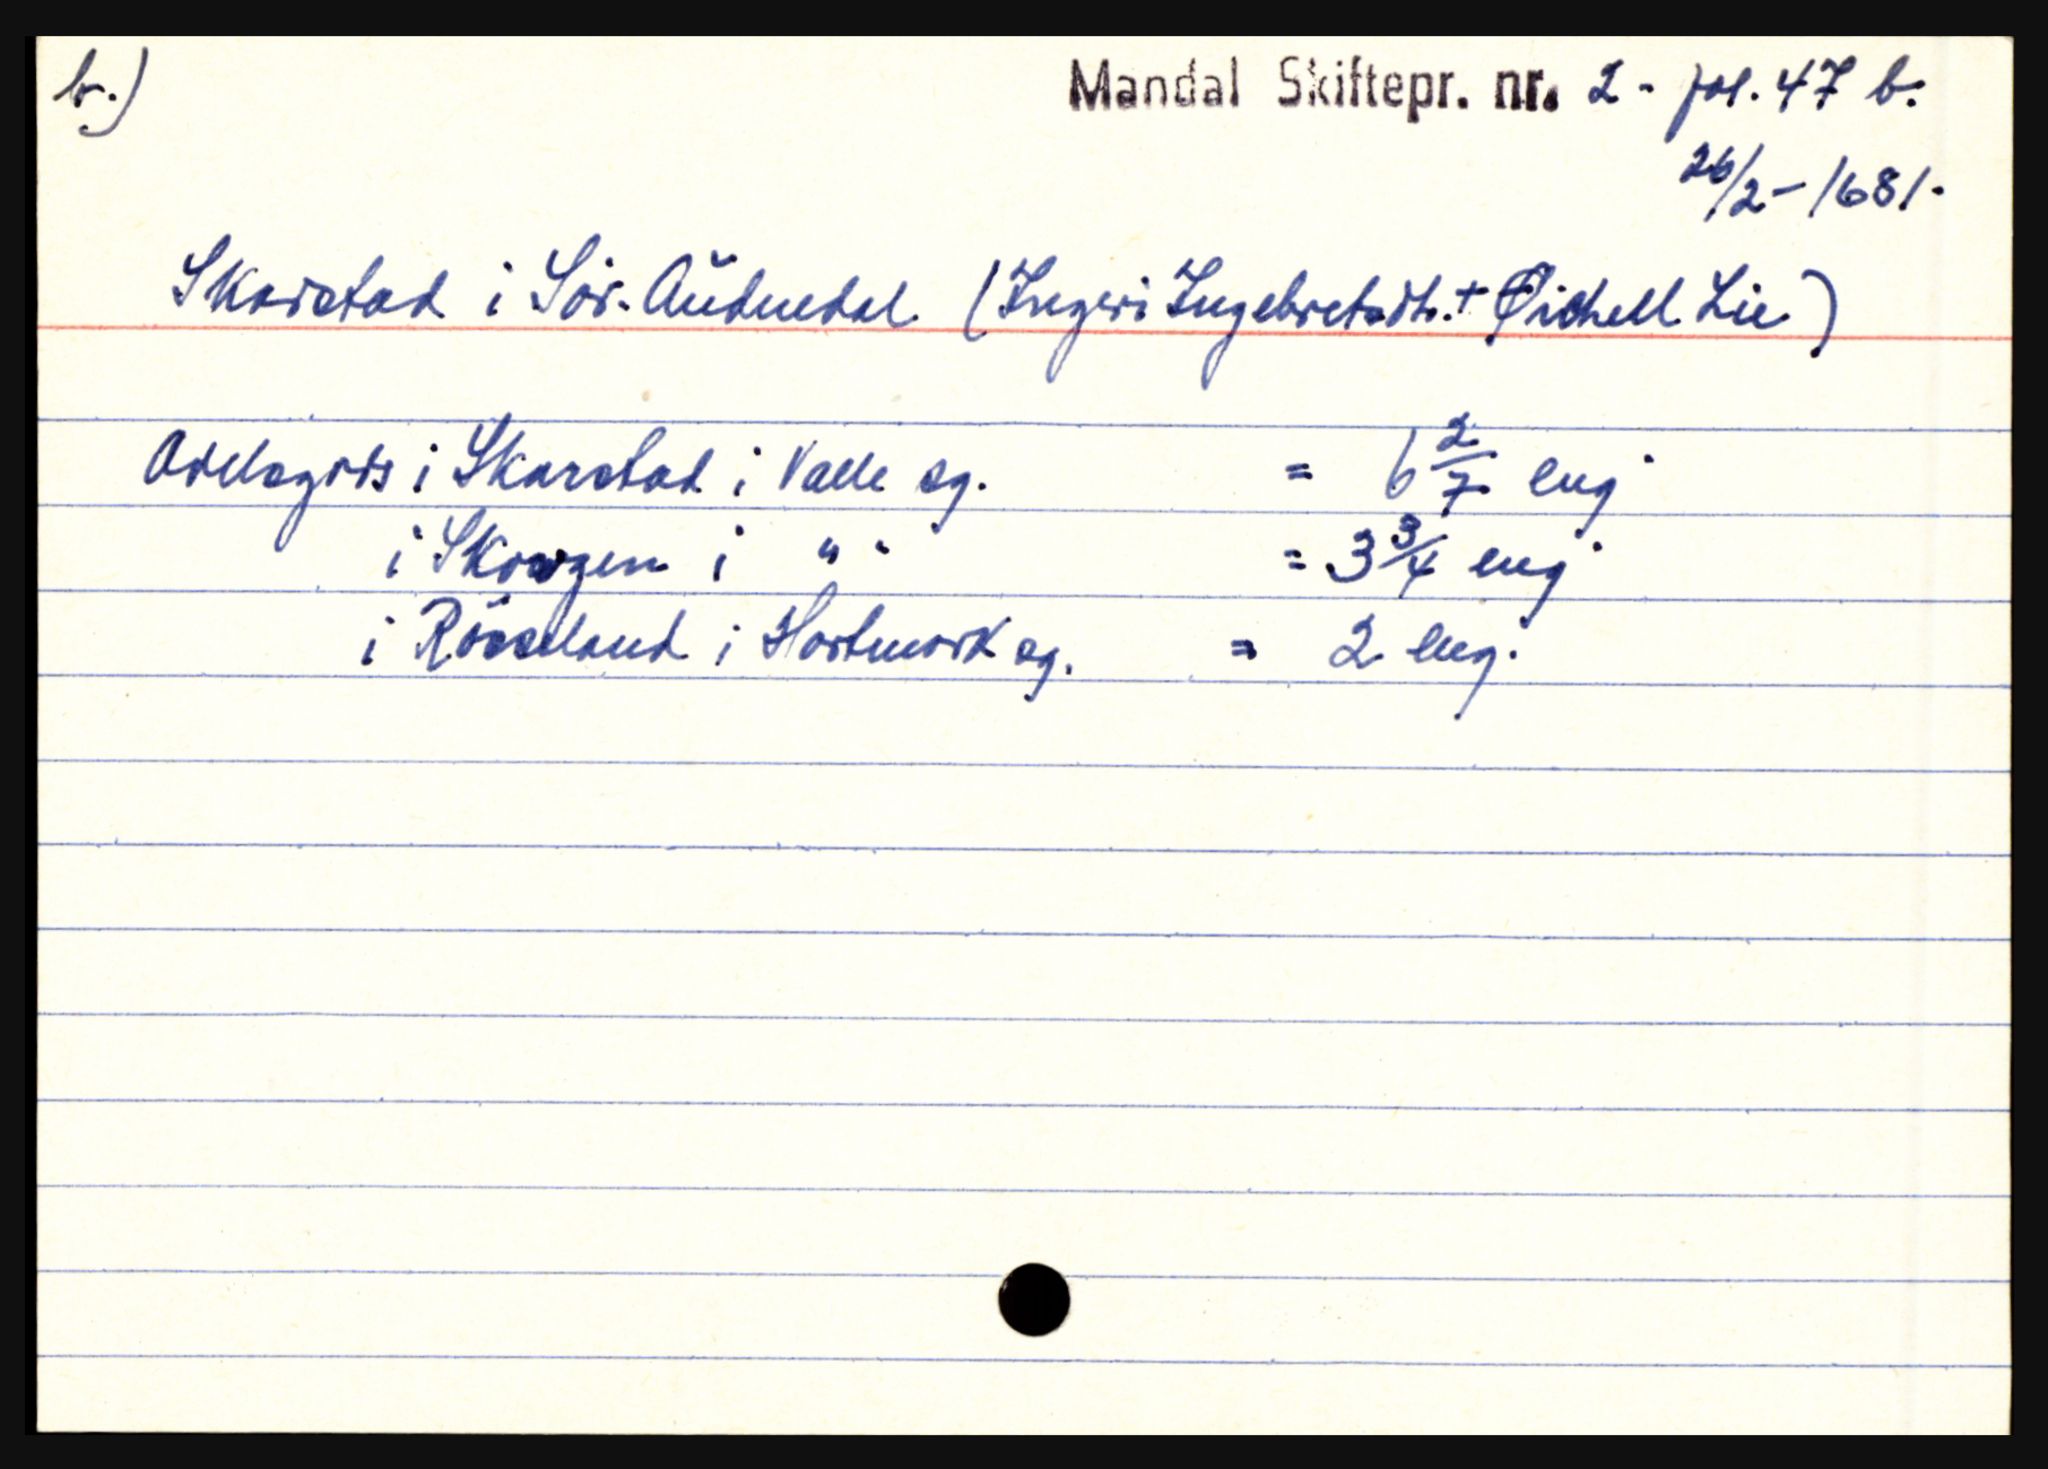 b.)
Mandal Skiftepr. nr. 2 - fol. 47 b.
26/2 - 1681.
Skarstad i Sör-Audnedal (Ingeri Ingebretsdt. + Øichell Lie)
Odelsgods i Skarstad i Valle sg. = 6 2/7 eng
i Skougen i " " = 3 3/4 eng
i Rösseland i Hartmark sg. = 2 eng.